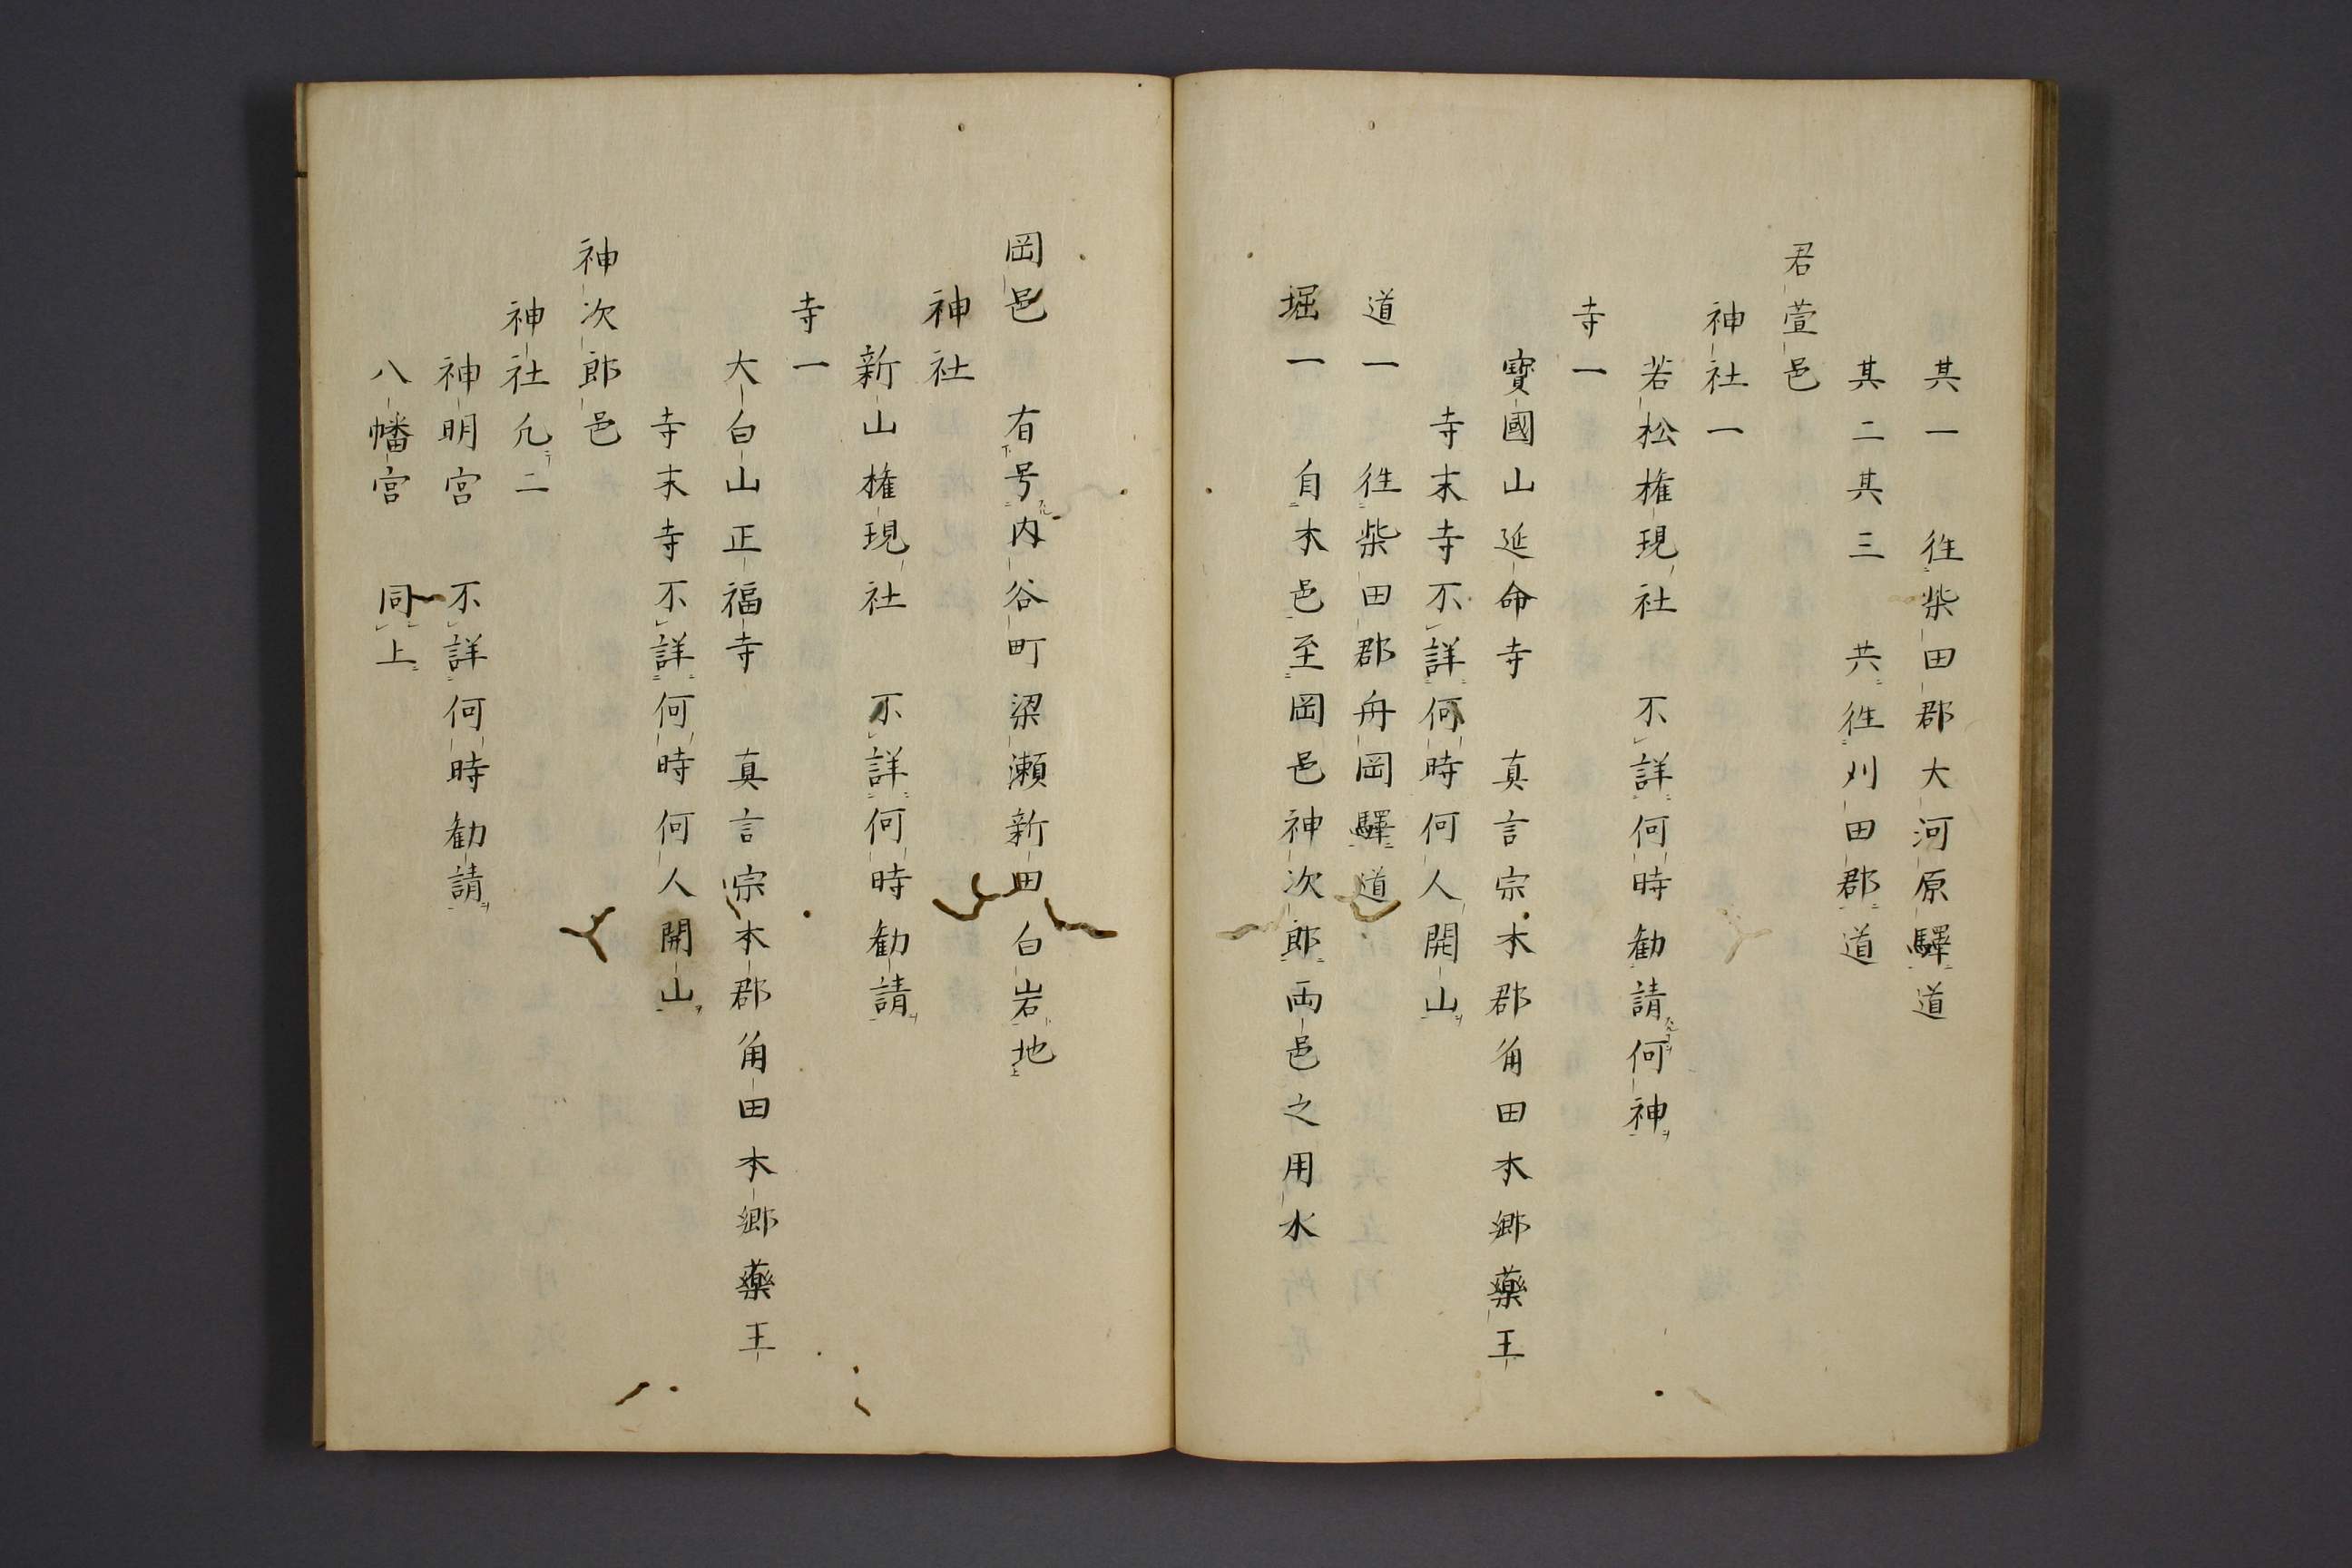 其一　往柴田郡大河原驛道
其二其三　共往刈田郡道
君萱邑
神社一
若松権現社　不詳何時勧請何神
寺一
寶國山延命寺　真言宗本郡角田本郷藥王
寺末寺不詳何時何人開山
道一　往柴田郡舟岡驛道
堀一　自本邑至岡邑神次郎両邑之用水
岡邑　有号内谷町梁瀬新田白岩地
神社
新山権現社　不詳何時勧請
寺一
大白山正福寺　真言宗本郡角田本郷藥王
寺末寺不詳何時何人開山
神次郎邑
神社凢二
神明宮　不詳何時勧請
八幡宮　同上